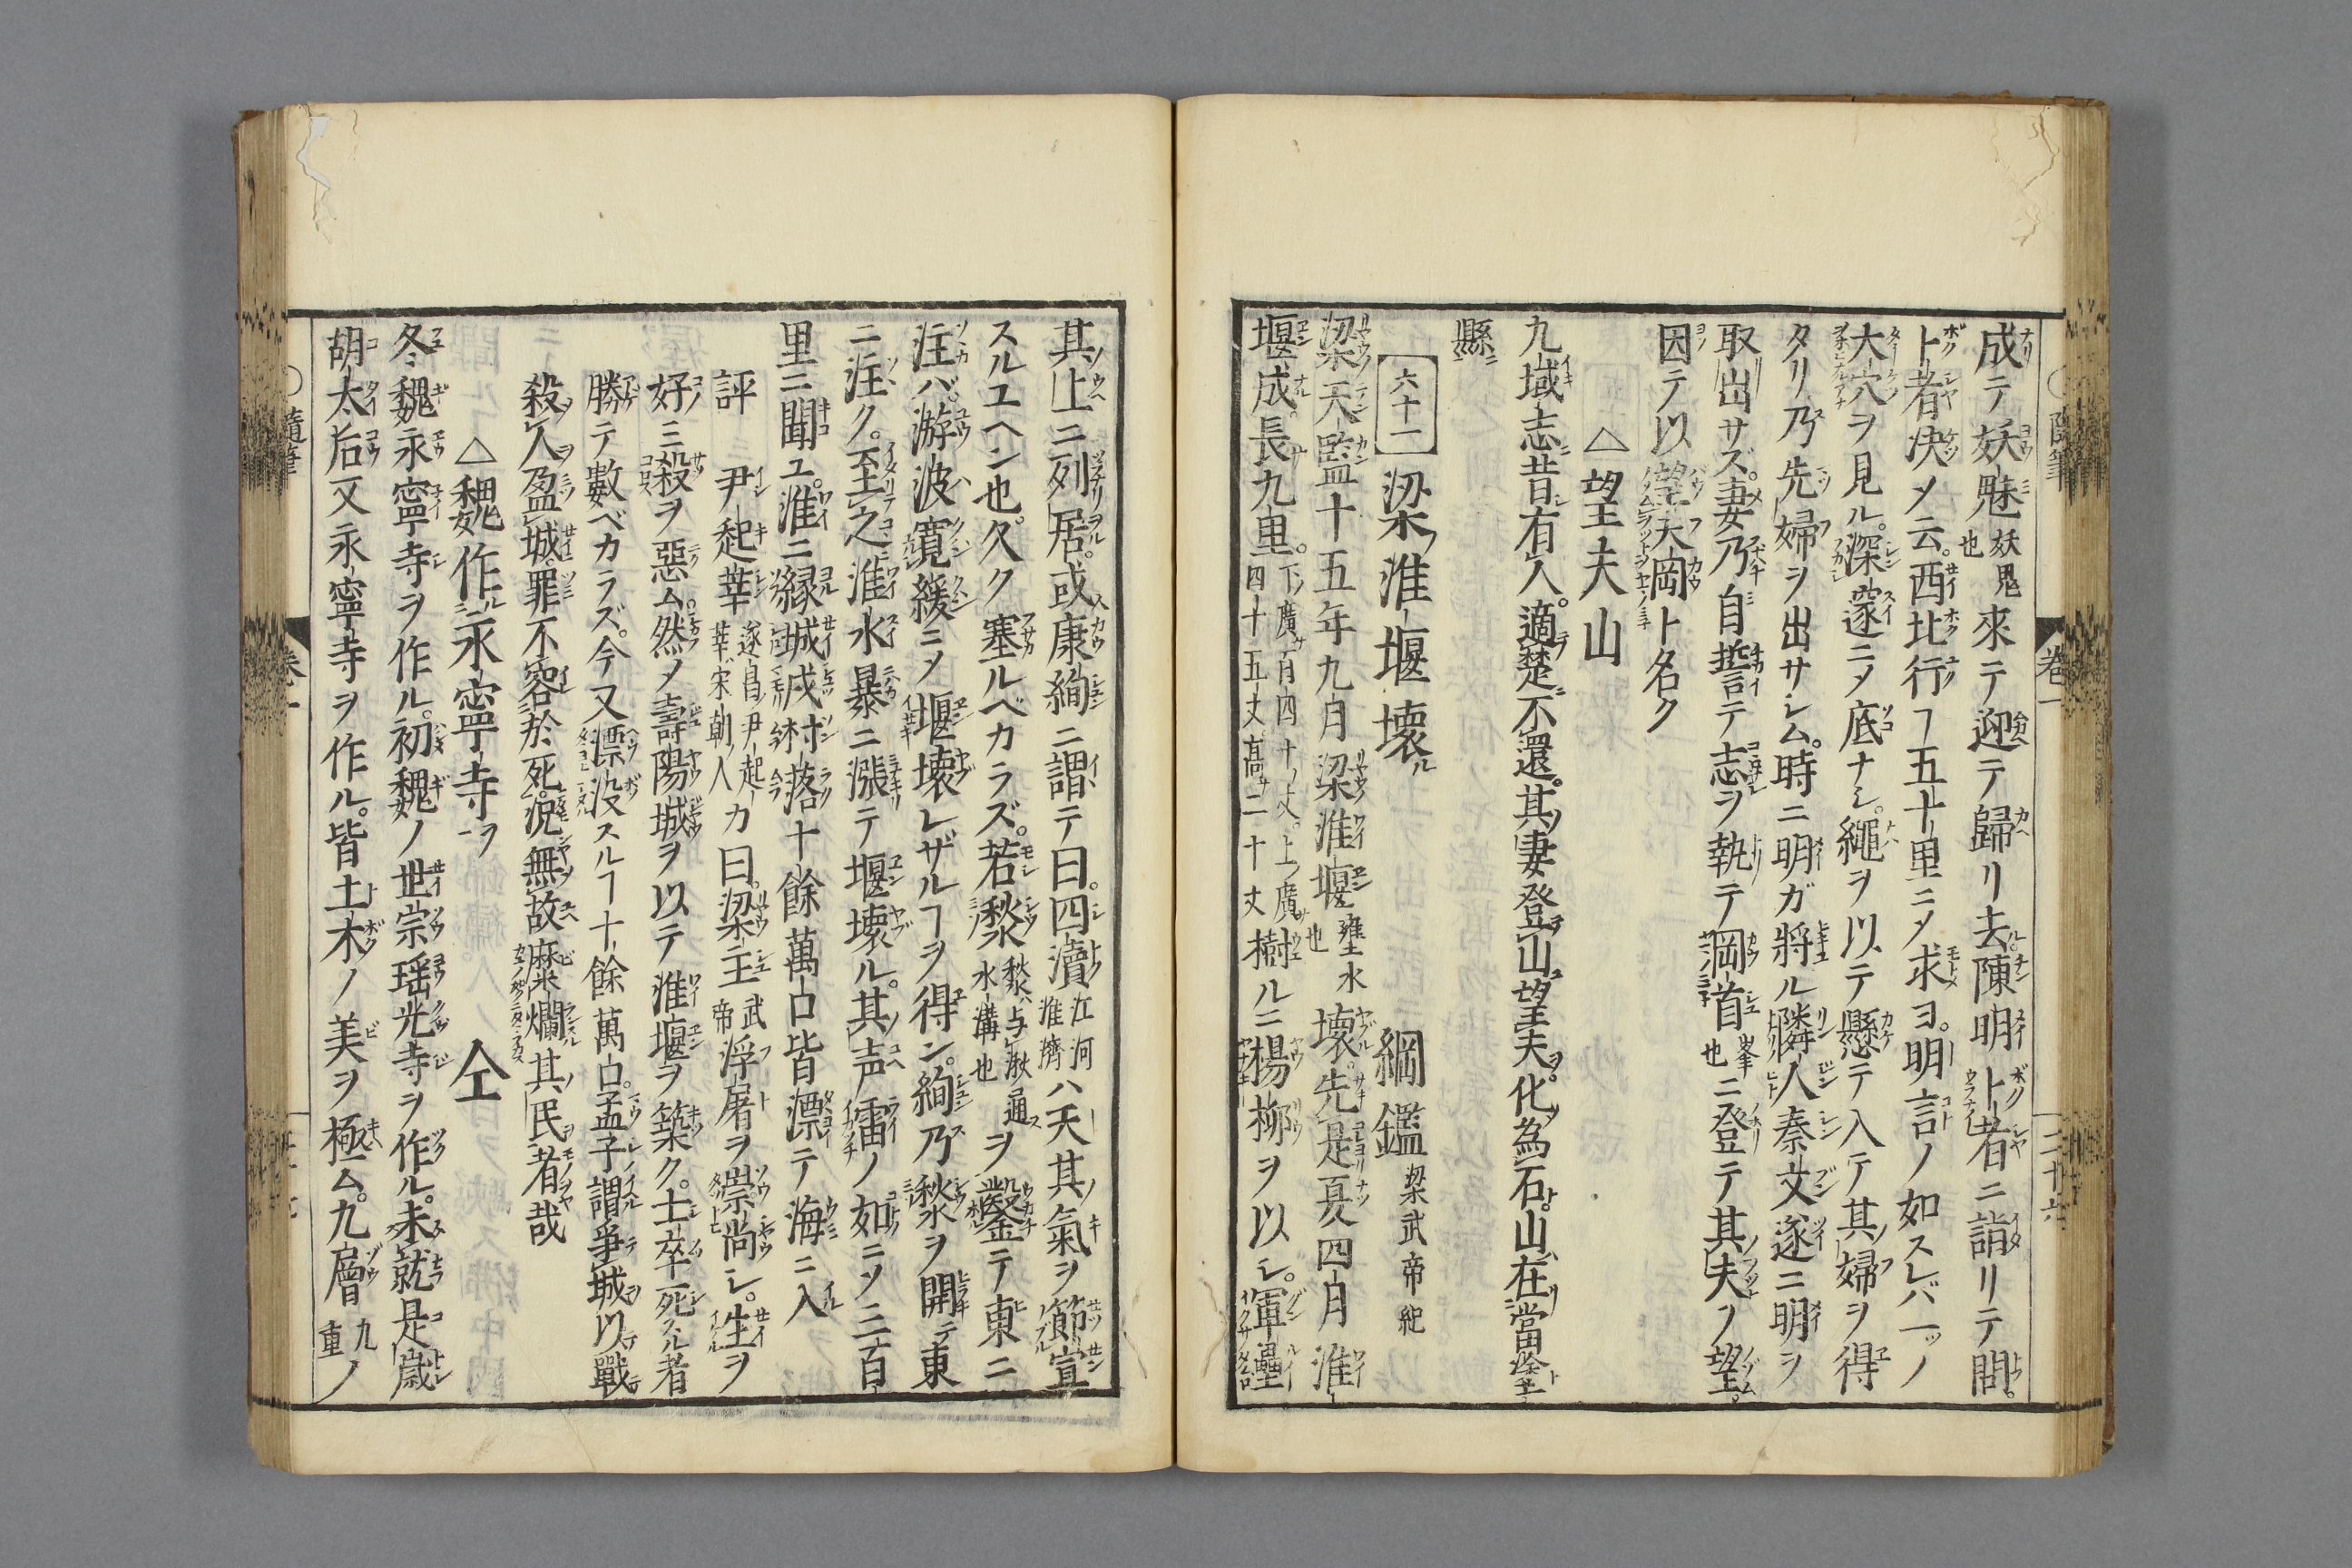 成テ妖魅妖鬼也來テ迎テ歸リ去ル陳明卜者ニ詣リテ問フ。
卜者决〆云。西北行ヿ五十里ニ〆求ヨ。明言ノ如スレバ一ッノ
大穴ヲ見ル。深邃ニ〆底ナシ。繩ヲ以テ懸テ入テ其婦ヲ得
タリ乃先婦ヲ出サシム。時ニ明ガ將ル隣人秦文遂ニ明ヲ
取出サズ。妻乃自誓テ志ヲ執テ岡首峯也ニ登テ其夫ヲ望。
因テ以望夫岡ト名ク
△望夫山
九域志昔有人。適楚不還。其妻登山望夫。化為石。山在當塗
縣
六十一 梁ノ淮堰壊ル 綱鑑梁武帝紀
梁天監十五年九月梁淮堰壅水也壊。先是夏四月淮
堰成長九里。下廣サ百四十丈。上廣サ四十五丈高サ二十丈樹ルニ楊柳ヲ以シ。軍壘
其上ニ列居。或康絢ニ謂テ曰。四瀆江河淮濟ハ天其氣ヲ節宣
スルユヘン也。久ク塞ルベカラズ。若湫湫ハ与湫通ス水溝也ヲ鑿テ東ニ
注バ游波寛緩ニ〆堰壊レザルヿヲ得ン。絢乃湫ヲ開テ東
ニ注ク。至之淮水暴ニ漲テ堰壊ル。其声雷ノ如ニ〆三百
里ニ聞ユ。淮ニ縁城戍村落十餘萬口皆漂テ海ニ入
評 尹起莘遂昌尹起莘宋朝人カ曰。梁主武帝浮屠ヲ崇尚シ。生ヲ
好ミ殺ヲ惡ム。然〆壽陽城ヲ以テ淮堰ヲ築ク。士卒死スル者
勝テ數ベカラズ。今又漂没スルヿ十餘萬口。孟子謂爭城以戰
殺人盈城。罪不容於死。況無故糜爛其民者哉
△魏作永寧寺ヲ 仝
冬魏永寧寺ヲ作ル。初魏ノ世宗瑶光寺ヲ作ル。未就是歲
胡太后又永寧寺ヲ作ル。皆土木ノ美ヲ極ム。九層九重ノ
隨筆 卷一 二十六
隨筆 卷一